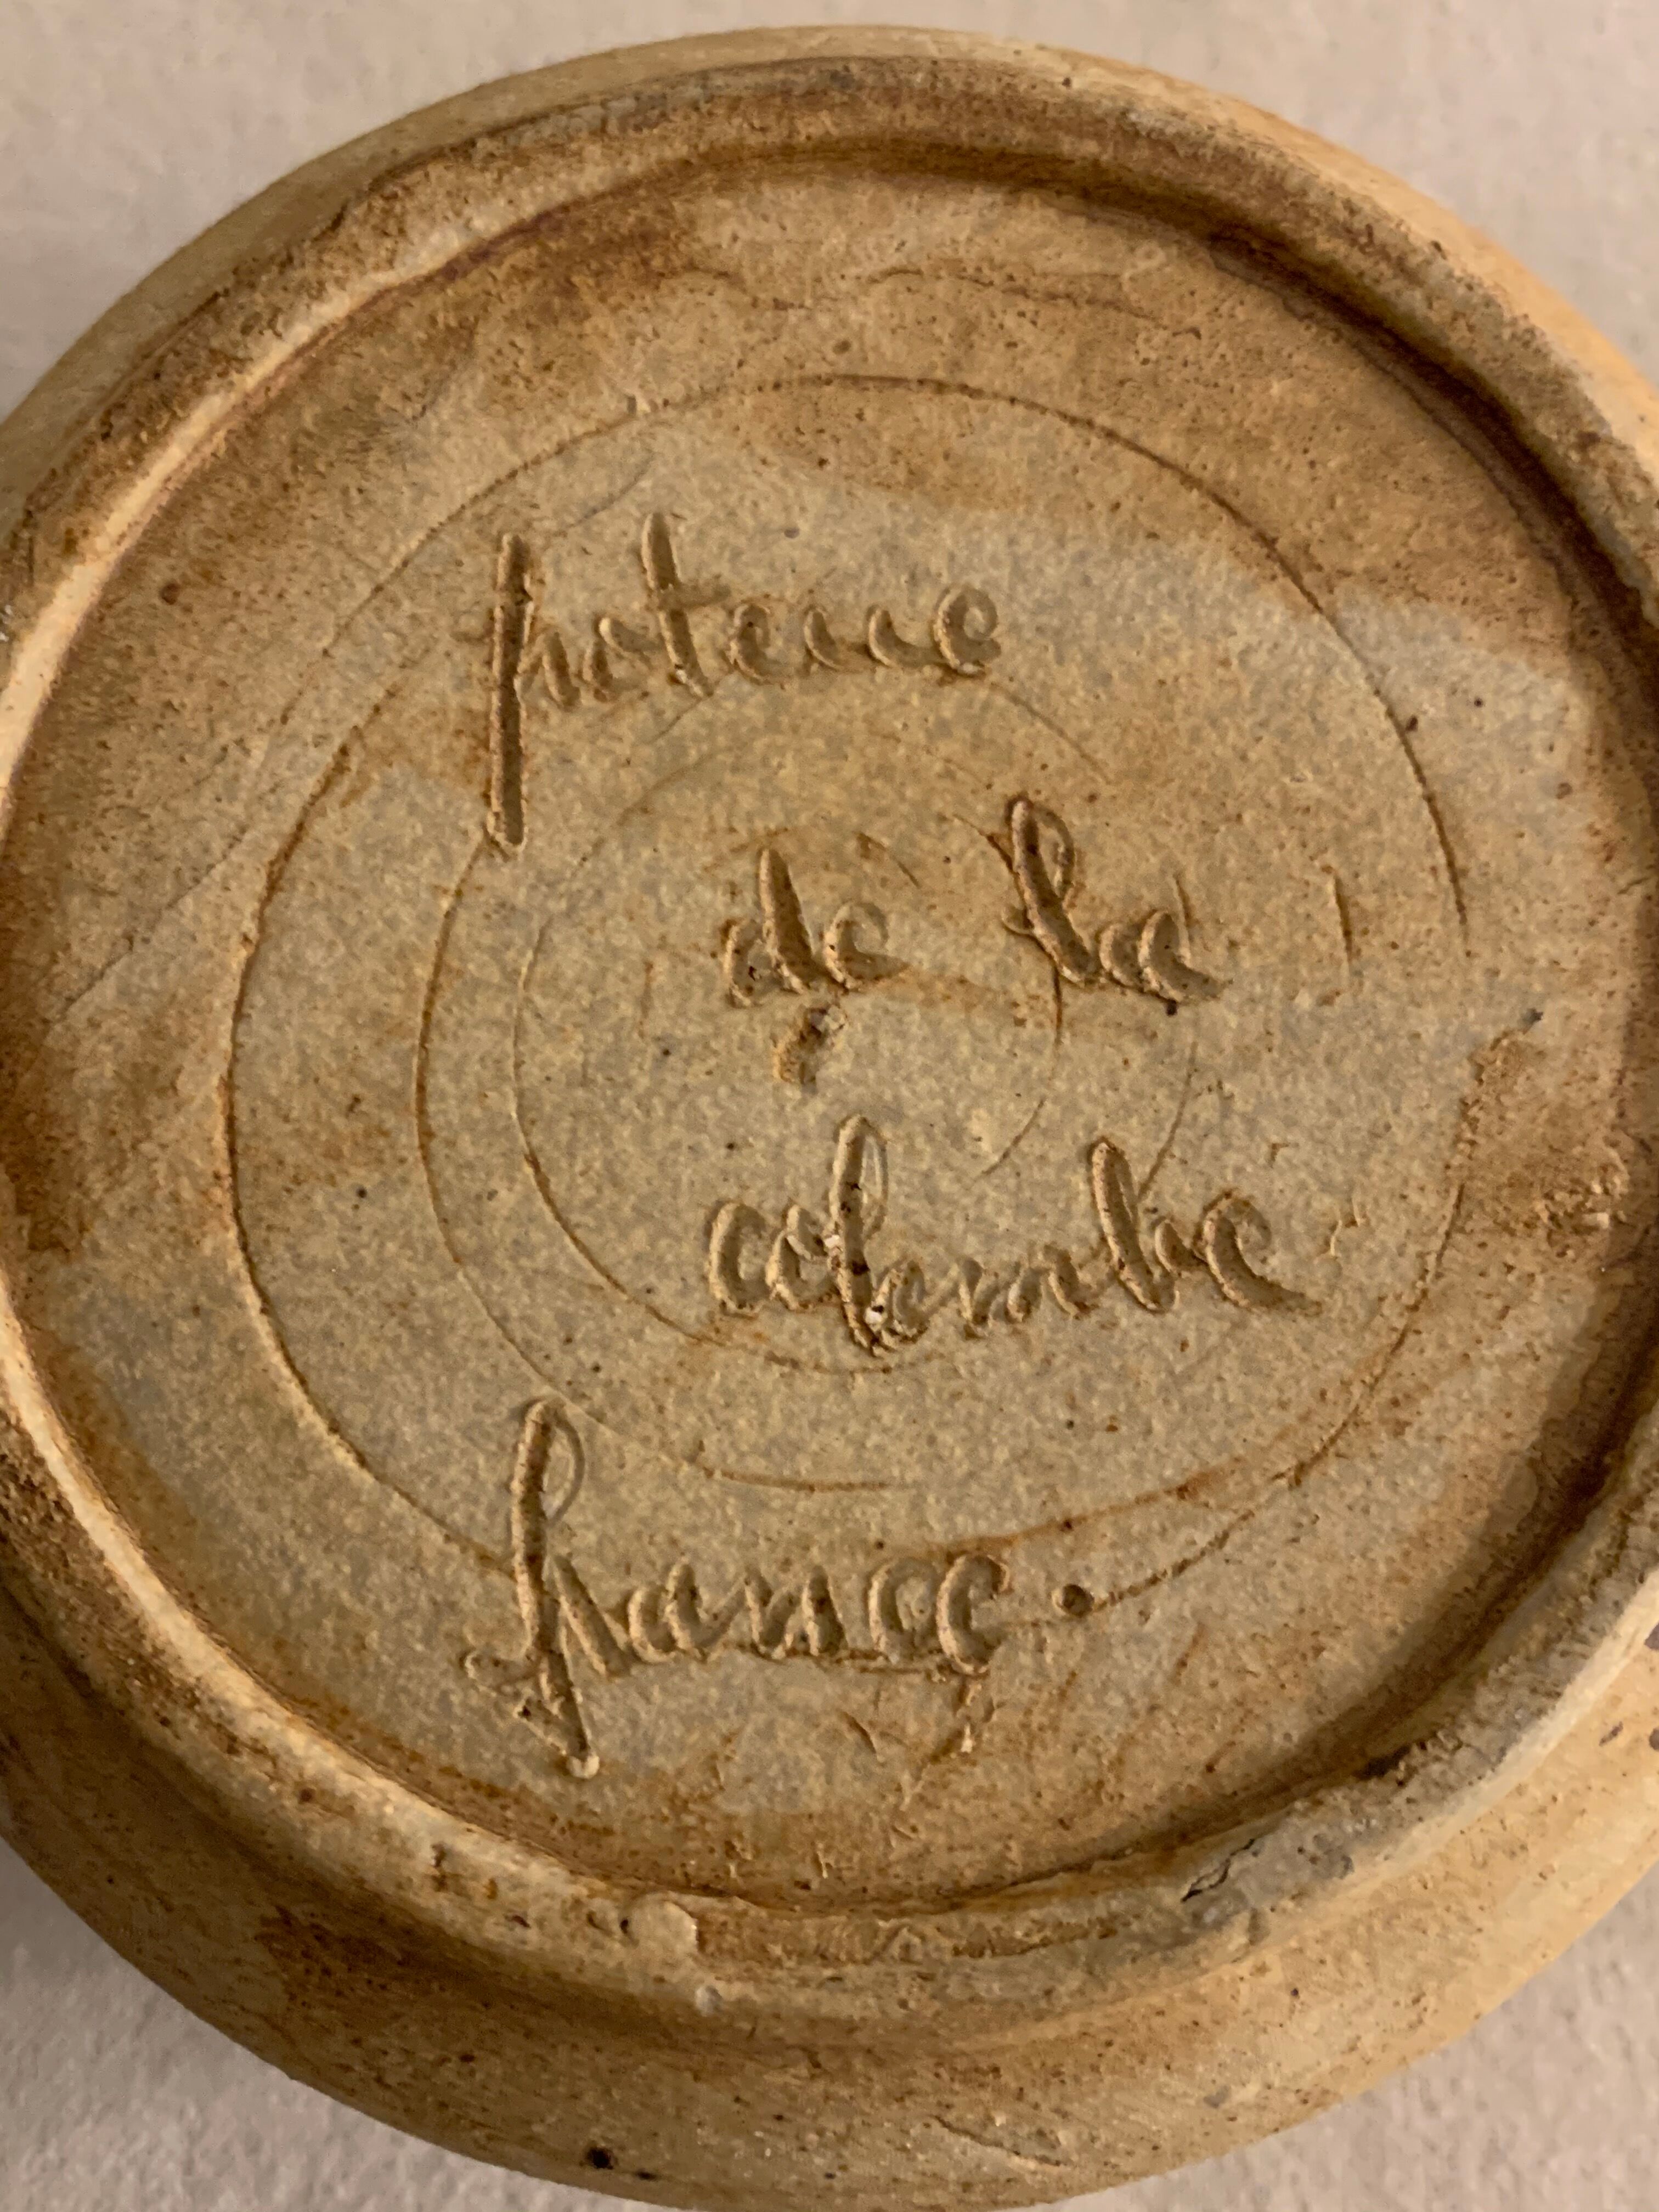 poterie
de la
colombe
france.